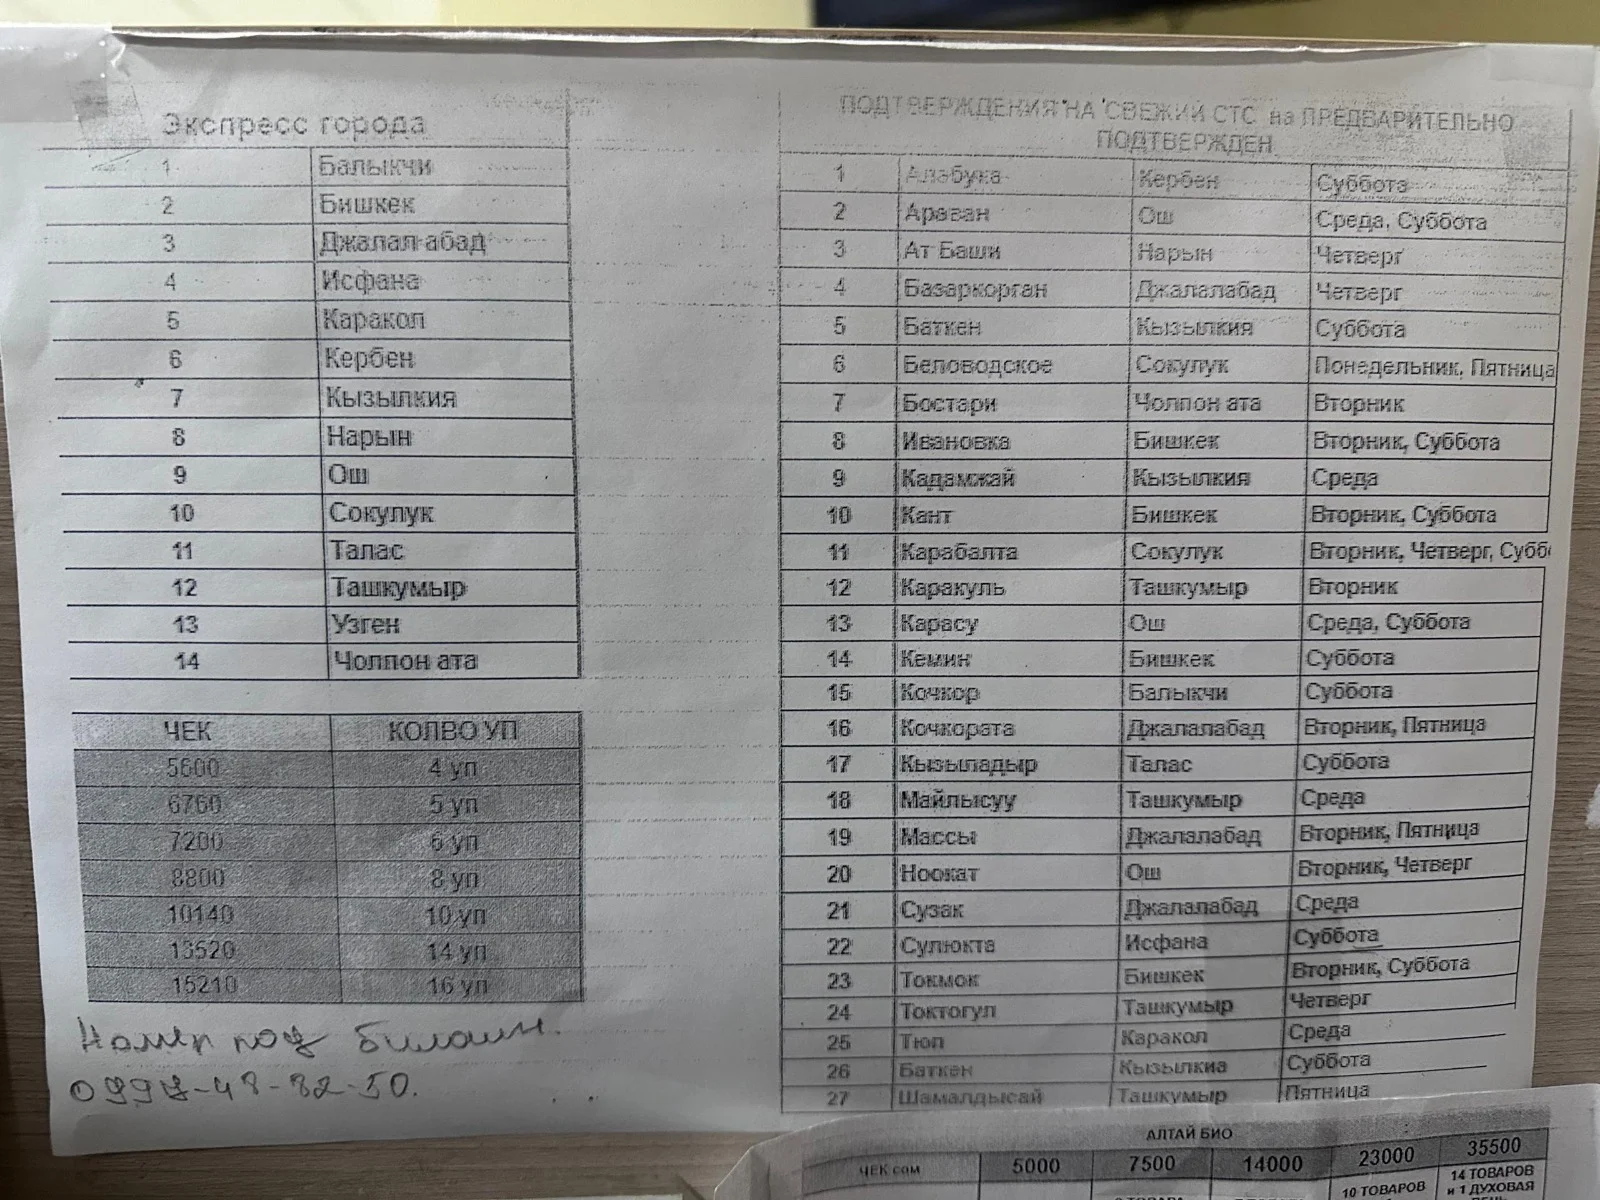 Экспресс города
1 Балыкчи
2 Бишкек
3 Джалал абад
4 Исфана
5 Каракол
6 Кербен
7 Кызылкия
8 Нарын
9 Ош
10 Сокулук
11 Талас
12 Ташкумыр
13 Узген
14 Чолпон ата
ЧЕК КОЛВО УП
5600 4 уп
6760 5 уп
7200 6 уп
8800 8 уп
10140 10 уп
13520 14 уп
15210 16 уп
Номер под
ПОДТВЕРЖДЕНИЯ НА СВЕЖИЙ СТС на ПРЕДВАРИТЕЛЬНО
ПОДТВЕРЖДЕН
1 Алабука Кербен Суббота
2 Араван Ош Среда, Суббота
3 Ат Баши Нарын Четверг
4 Базаркорган Джалалабад Четверг
5 Баткен Кызылкия Суббота
6 Беловодское Сокулук Понедельник, Пятница
7 Бостари Чолпон ата Вторник
8 Ивановка Бишкек Вторник, Суббота
9 Кадамжай Кызылкия Среда
10 Кант Бишкек Вторник, Суббота
11 Карабалта Сокулук Вторник, Четверг, Субб
12 Каракуль Ташкумыр Вторник
13 Карасу Ош Среда, Суббота
14 Кемин Бишкек Суббота
15 Кочкор Балыкчи Суббота
16 Кочкората Джалалабад Вторник, Пятница
17 Кызыладыр Талас Суббота
18 Майлысуу Ташкумыр Среда
19 Массы Джалалабад Вторник, Пятница
20 Ноокат Ош Вторник, Четверг
21 Сузак Джалалабад Среда
22 Сулюкта Исфана Суббота
23 Токмок Бишкек Вторник, Суббота
24 Токтогул Ташкумыр Четверг
25 Тюп Каракол Среда
26 Баткен Кызылкиа Суббота
27 Шамалдысай Ташкумыр Пятница
АЛТАЙ БИО
ЧЕК сом 5000 7500 14000 23000 35500
10 ТОВАРОВ 14 ТОВАРОВ
и 1 ДУХОВАЯ